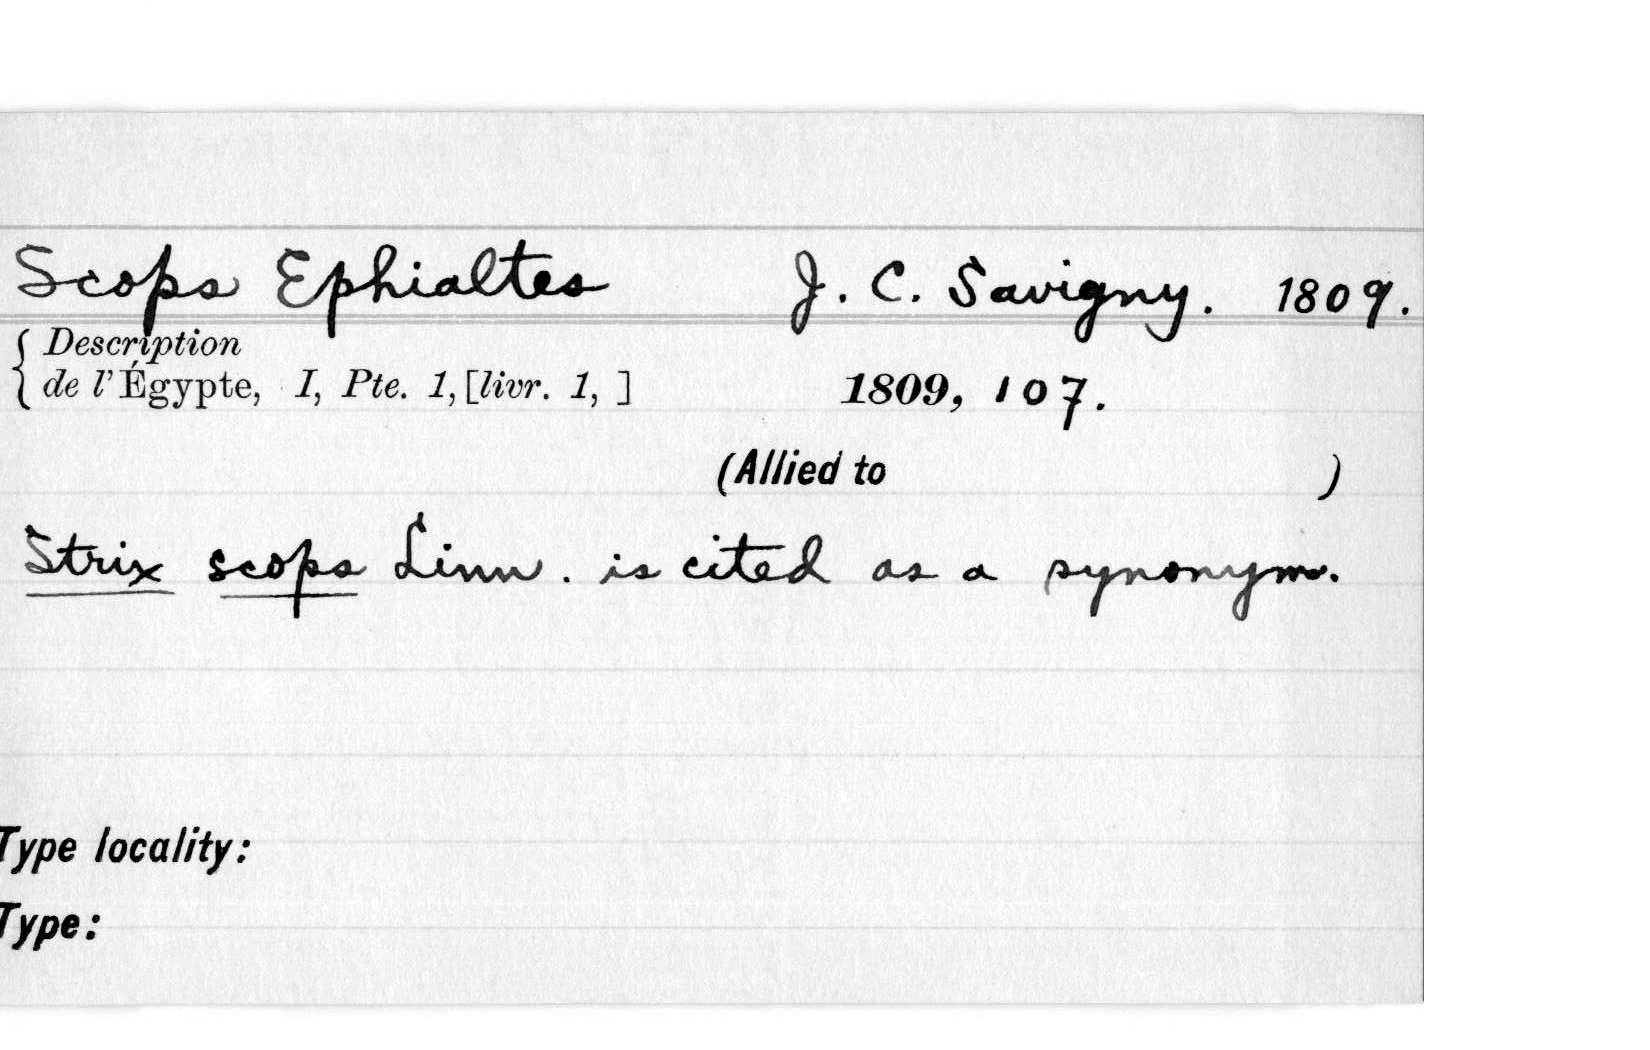 Scops Ephialtes J. C. Savigny. 1809.
Description
de l'Égypte, I, Pte. 1, [livr. 1, ] 1809, 107.
(Allied to )
Strix scops Linn. is cited as a synonym.
Type locality:
Type: